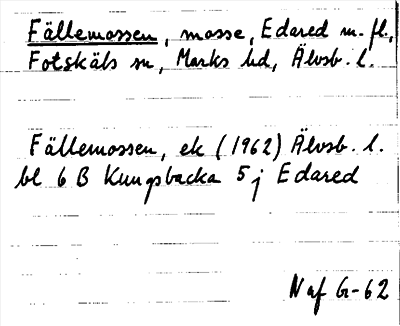 Fällemossen, mosse, Edared m. fl.,
Fotskäls sn, Marks hd, Älvsb. l.
Fällemossen, ek (1962) Älvsb. l.
bl 6 B Kungsbacka 5 j Edared
Naf G-62